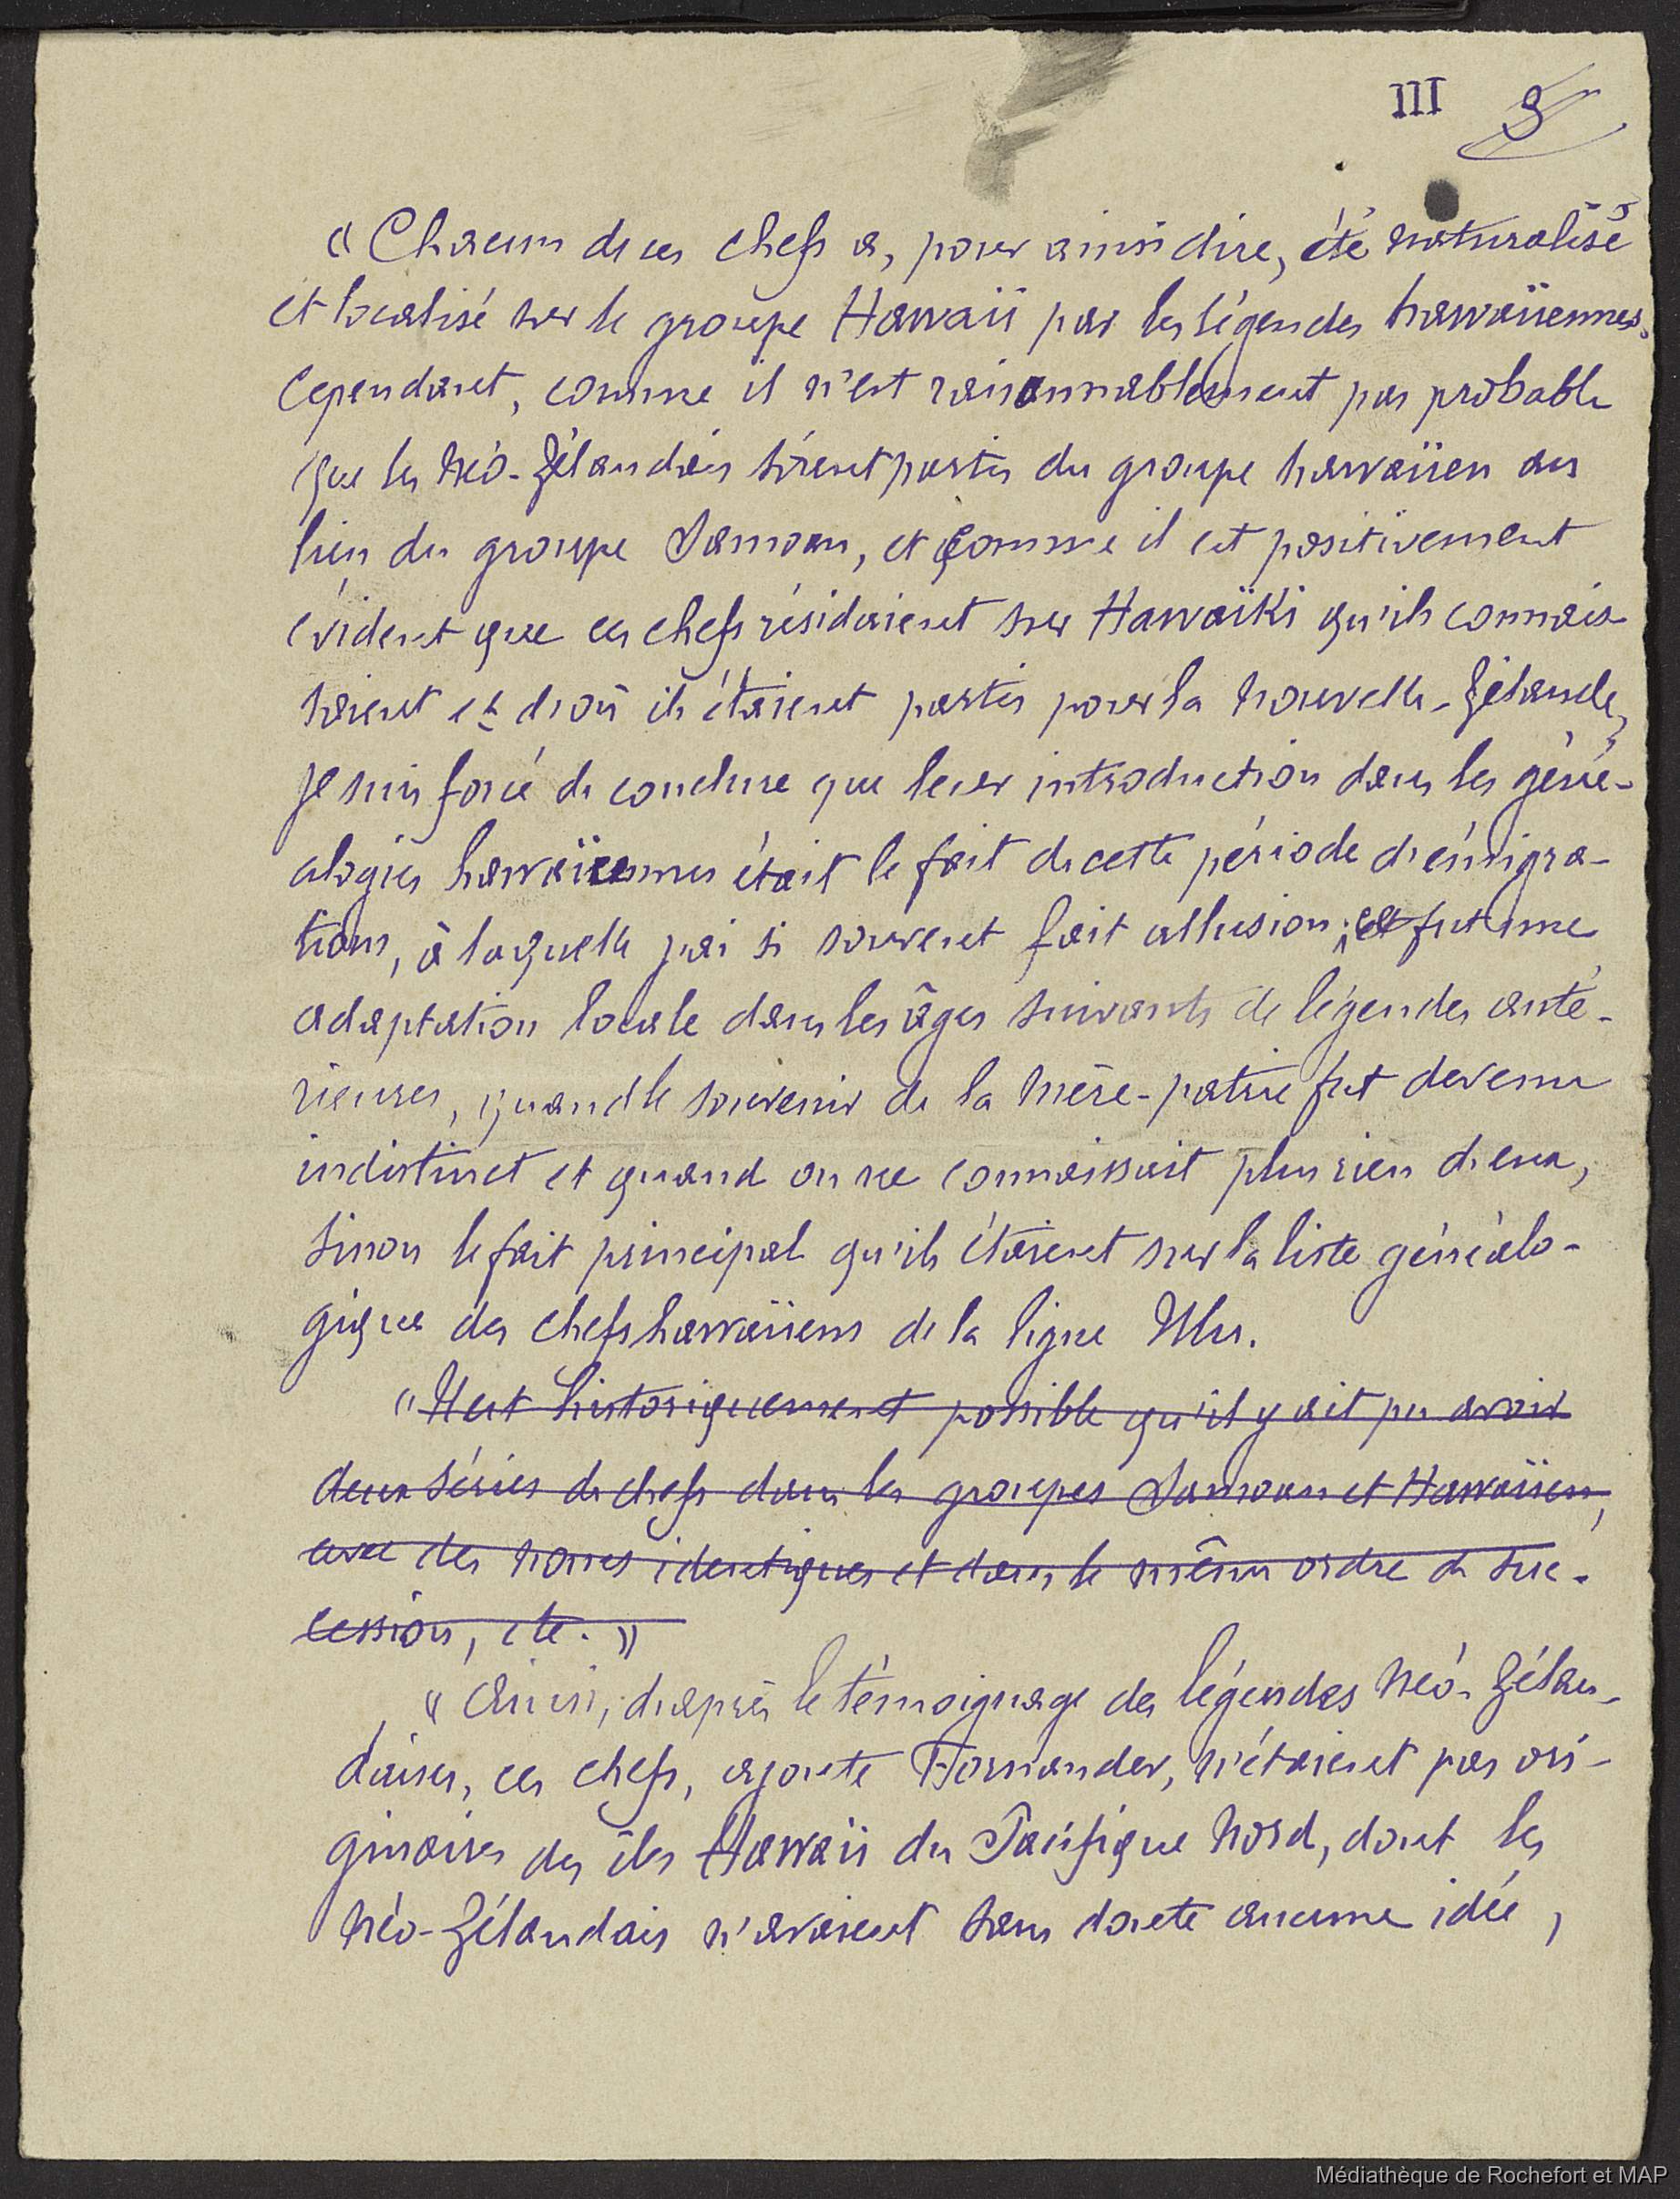 III 9
« Chacun de ces chefs a, pour ainsi dire, été naturalisé
et localisé sur le groupe Hawaii par les légendes hawaïiennes.
Cependant, comme il n'est raisonnablement pas probable
que les Néo-Zélandais soient partis du groupe hawaïien au
lieu du groupe Samoan, et comme il est positivement
évident que ces chefs résidaient sur Hawaïki qu'ils connais-
saient et d'où ils étaient partis pour la Nouvelle-Zélande,
je suis forcé de conclure que leur introduction dans les géné-
alogies hawaïiennes était le fait de cette période d'émigra-
tions, à laquelle j'ai si souvent fait allusion; et fut une
adaptation locale dans les âges suivants de légendes anté-
rieures, quand le souvenir de la Mère-patrie fut devenu
indistinct et quand on ne connaissait plus rien d'eux,
sinon le fait principal qu'ils étaient sur la liste généalo-
gique des chefs hawaïiens de la ligne Ulu.
« Il est historiquement possible qu'il y ait pu avoir
deux séries de chefs dans les groupes Samoan et Hawaïien,
avec des noms identiques et dans le même ordre de suc-
cession, etc. »
« Ainsi, d'après le témoignage des légendes Néo-Zélan-
daises, ces chefs, ajoute Fornander, n'étaient pas ori-
ginaires des îles Hawaïi du Pacifique Nord, dont les
Néo-Zélandais n'avaient sans doute aucune idée,
Médiathèque de Rochefort et MAP